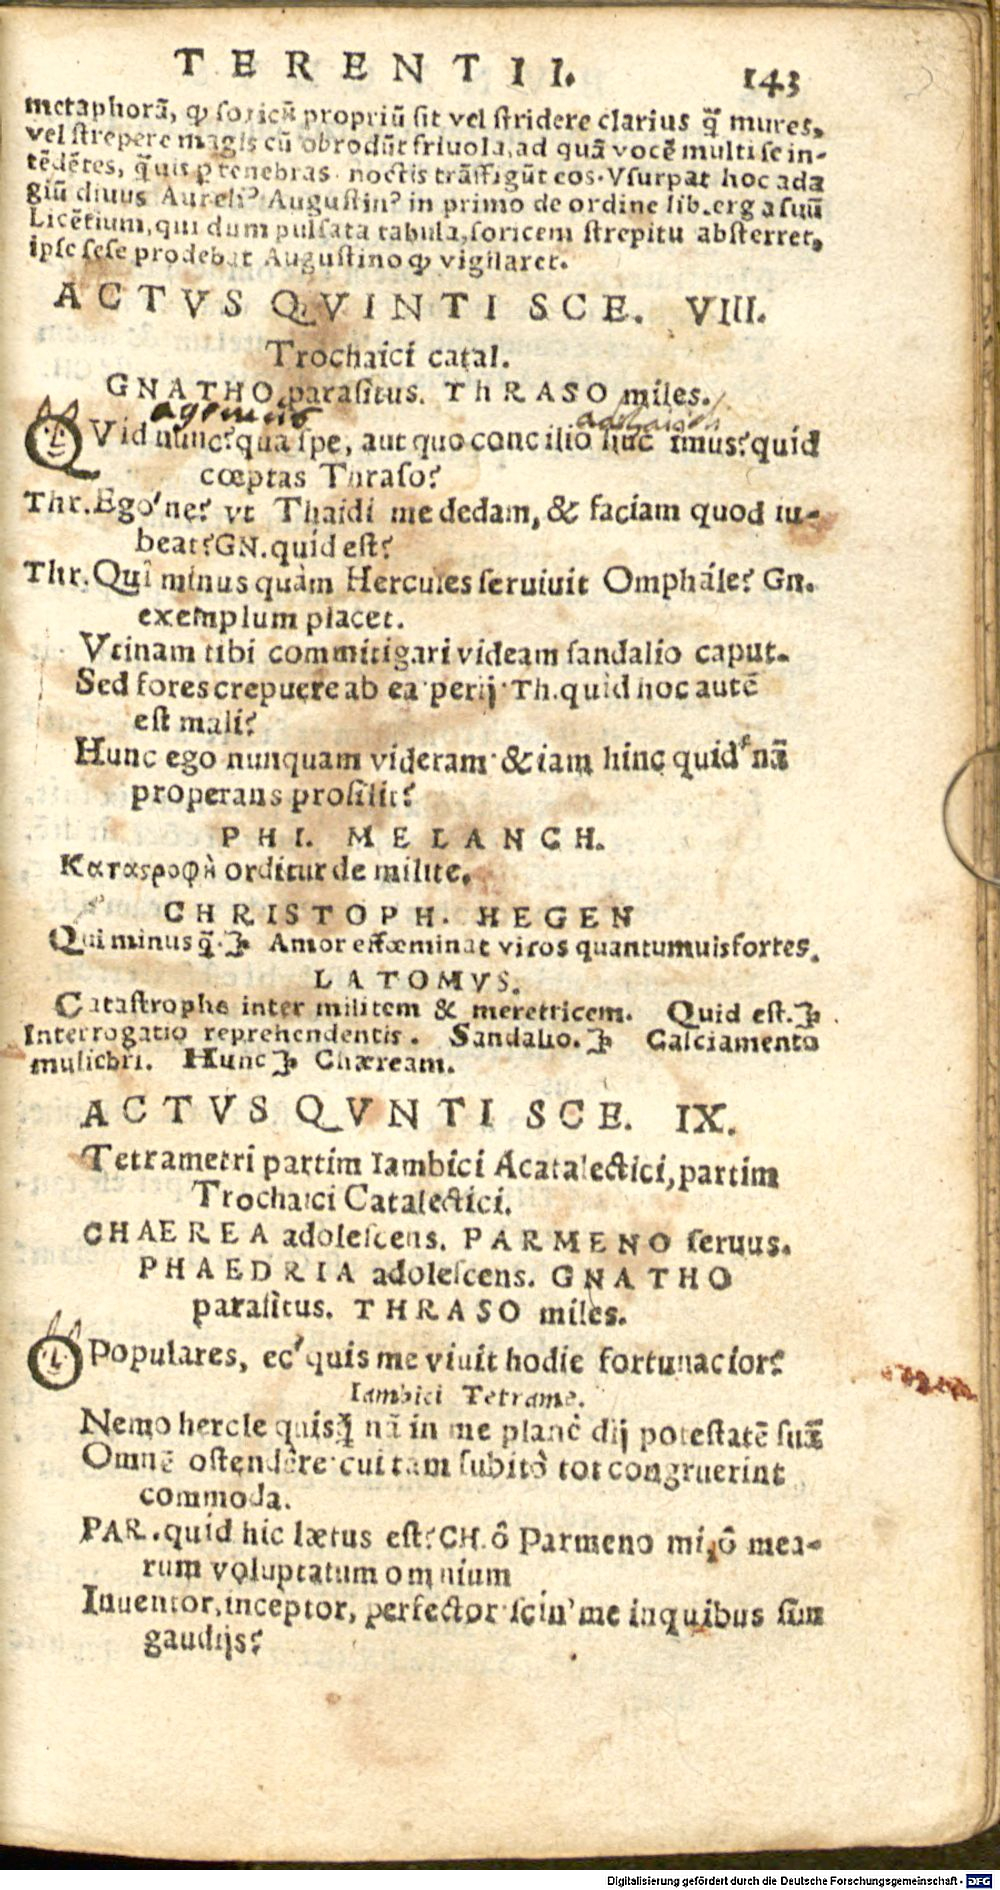 TERENTII. 143
metaphorā, ꝙ soricū propriū sit vel stridere clarius q̄ mures,
vel strepere magis cū obrodūt friuola, ad quā vocē multi se in-
tēdētes, q̄uis ꝑ tenebras noctis trāffigūt eos. Vsurpat hoc ada
giū diuus Aureliꝰ Augustinꝰ in primo de ordine lib. erga suū
Licētium, qui dum pulsata tabula, soricem strepitu absterret,
ipse sese prodebat Augustino ꝙ vigilaret.
ACTVS QVINTI SCE. VIII.
Trochaici catal.
GNATHO parasitus. THRASO miles.
QVid nunc? qua spe, aut quo concilio huc imus? quid
cœptas Thraso?
Thr. Ego'ne? vt Thaidi me dedam, & faciam quod iu-
beat? GN. quid est?
Thr. Quî minus quàm Hercules seruiuit Omphále? Gn.
exemplum placet.
Vtinam tibi commitigari videam sandalio caput.
Sed fores crepuere ab ea· perij· Th. quid hoc autē
est mali?
Hunc ego nunquam videram· & iam hinc quid'nā
properans prosilit?
PHI. MELANCH.
Καταςροφὴ orditur de milite.
CHRISTOPH. HEGEN
Qui minus q̄.⁊ Amor effœminat viros quantumuis fortes.
LATOMVS.
Catastrophe inter militem & meretricem. Quid est.⁊
Interrogatio reprehendentis. Sandalio.⁊ Calciamento
muliebri. Hunc⁊ Chæream.
ACTVS QVNTI SCE. IX.
Tetrametri partim Iambici Acatalectici, partim
Trochaici Catalectici.
CHAEREA adolescens. PARMENO seruus.
PHAEDRIA adolescens. GNATHO
parasitus. THRASO miles.
O Populares, ec'quis me viuit hodie fortunacior?
Iambici Tetrame.
Nemo hercle quisq̄ nā in me planè dij potestatē suā
Omnē ostendêre· cui tam subitò tot congruerint
commoda.
PAR. quid hic lætus est? CH. ô Parmeno mi, ô mea-
rum voluptatum omnium
Inuentor, inceptor, perfector· scin' me in quibus sim
gaudijs?
Digitalisierung gefördert durch die Deutsche Forschungsgemeinschaft - DFG